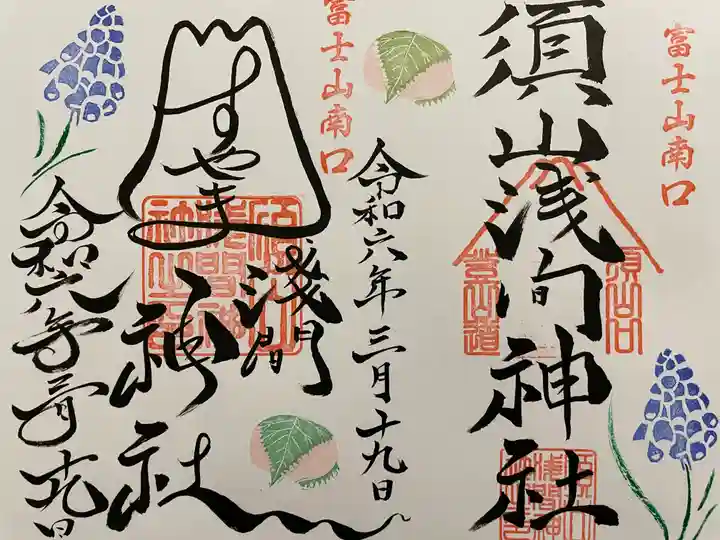 富士山南口
須山浅間神社
須山口
登山道
令和六年三月十九日
富士山南口
すやま
浅間
神社
令和六年三月十九日